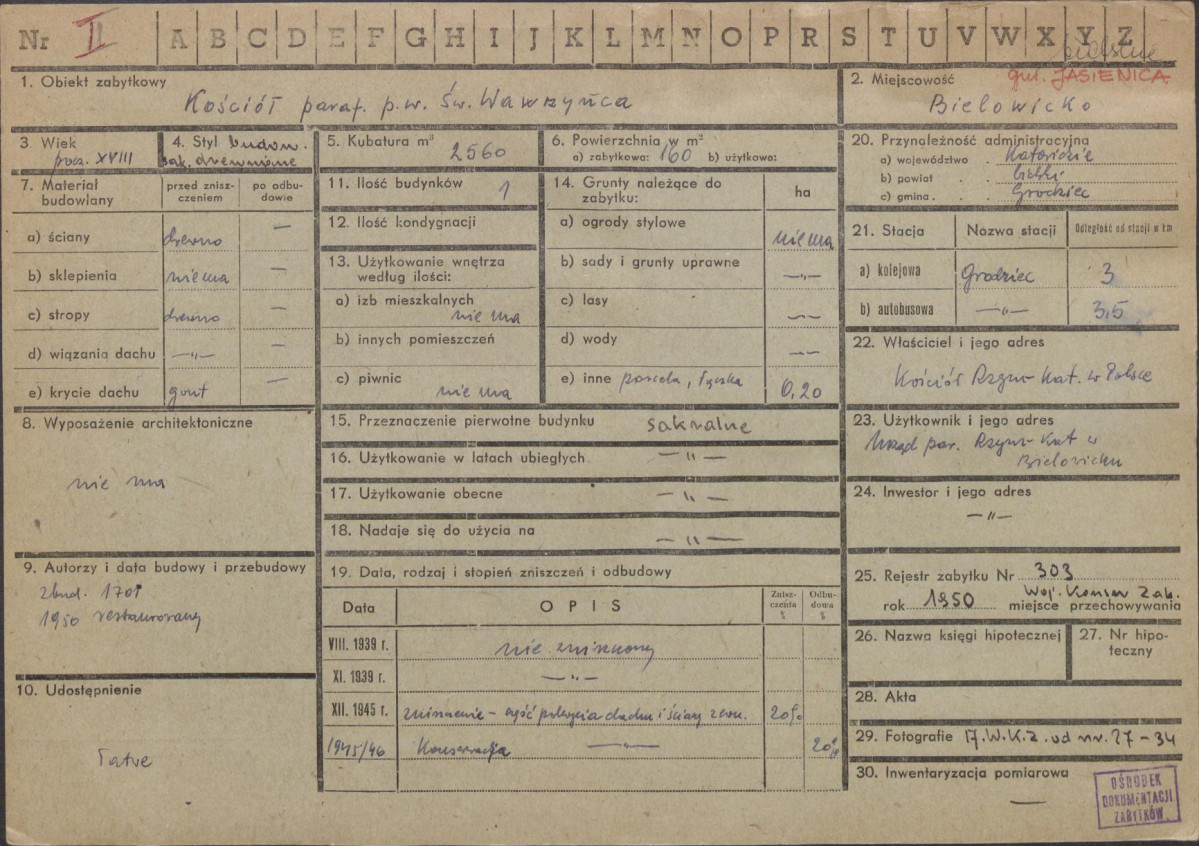 Nr II A B C D E F G H I J K L M N O P R S T U V W X Y Z
gm. JASIENICA
1. Obiekt zabytkowy
Kościół paraf. p.w. Św. Wawrzyńca
2. Miejscowość
Bielowicko
3. Wiek
pocz. XVIII
4. Styl budow.
sak. drewniane
5. Kubatura m³
2560
6. Powierzchnia w m²
a) zabytkowa: 160 b) użytkowa:
7. Materiał budowlany
przed zniszczeniem
po odbudowie
a) ściany drewno —
b) sklepienia nie ma —
c) stropy drewno —
d) wiązania dachu —„— —
e) krycie dachu gont —
8. Wyposażenie architektoniczne
nie ma
9. Autorzy i data budowy i przebudowy
zbud. 1701
1950 restaurowany
10. Udostępnienie
Łatwe
11. Ilość budynków 1
12. Ilość kondygnacji
13. Użytkowanie wnętrza
według ilości:
a) izb mieszkalnych
nie ma
b) innych pomieszczeń
c) piwnic
nie ma
14. Grunty należące do
zabytku:
ha
a) ogrody stylowe
nie ma
b) sady i grunty uprawne
—„—
c) lasy
—„—
d) wody
—„—
e) inne parcela, łączka
0,20
15. Przeznaczenie pierwotne budynku sakralne
16. Użytkowanie w latach ubiegłych —„—
17. Użytkowanie obecne —„—
18. Nadaje się do użycia na —„—
19. Data, rodzaj i stopień zniszczeń i odbudowy
Data OPIS Zniszczenia % Odbudowa %
VIII. 1939 r. nie zniszczony
XI. 1939 r. —„—
XII. 1945 r. zniszczenie – część pokrycia dachu i ściany zewn. 20%
1945/46 Konserwacja —„— 20%
20. Przynależność administracyjna
a) województwo . Katowickie
b) powiat . . Bielski
c) gmina . . . Grodziec
21. Stacja Nazwa stacji Odległość od stacji w km
a) kolejowa Grodziec 3
b) autobusowa —„— 3,5
22. Właściciel i jego adres
Kościół Rzym-Kat. w Polsce
23. Użytkownik i jego adres
Urząd par. Rzym-Kat w
Bielowicku
24. Inwestor i jego adres
—„—
25. Rejestr zabytku Nr 303
Woj. Konser Zab.
rok 1950 miejsce przechowywania
26. Nazwa księgi hipotecznej
27. Nr hipoteczny
28. Akta
29. Fotografie A.W.K.Z. od nr. 27–34
30. Inwentaryzacja pomiarowa
—
OŚRODEK
DOKUMENTACJI
ZABYTKÓW